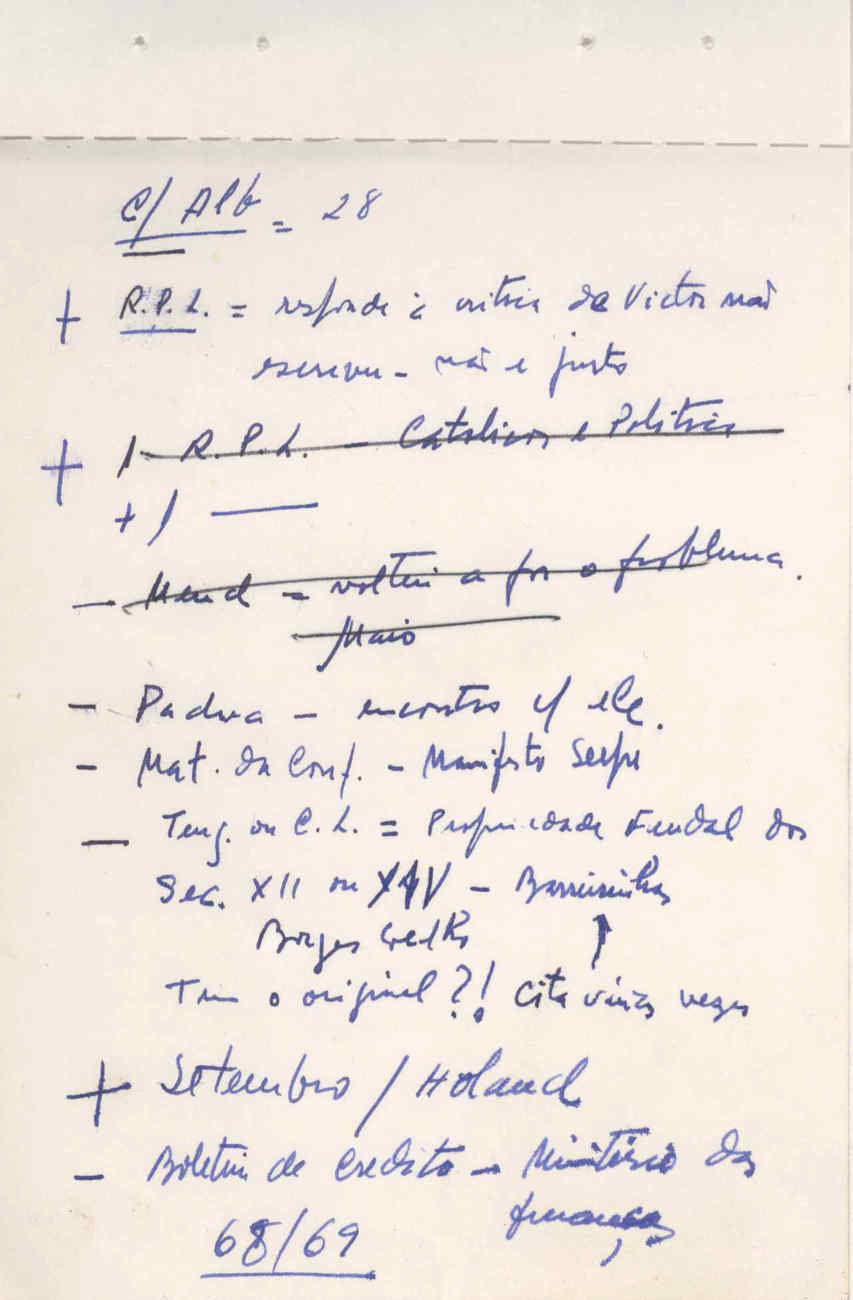 C/ Alb = 28
+ R.P.L. = responde à critica de Victor não
escreveu - não é justo
+ 1- R.P.L. - Catolicos e Politica
+ 1 —
- Mend = voltei a por o problema.
Maio
- Padua - encontro c/ ele.
- Mat. da Conf. - Manifesto
- Teng. ou C.L. = Propriedade Feudal dos
Sec. XII ou XIV - Barreirinhas
Borges Coelho
Tem o original?! Cita várias vezes
+ Setembro / Holand
- Boletim de Credito - Ministério das
finanças
68/69